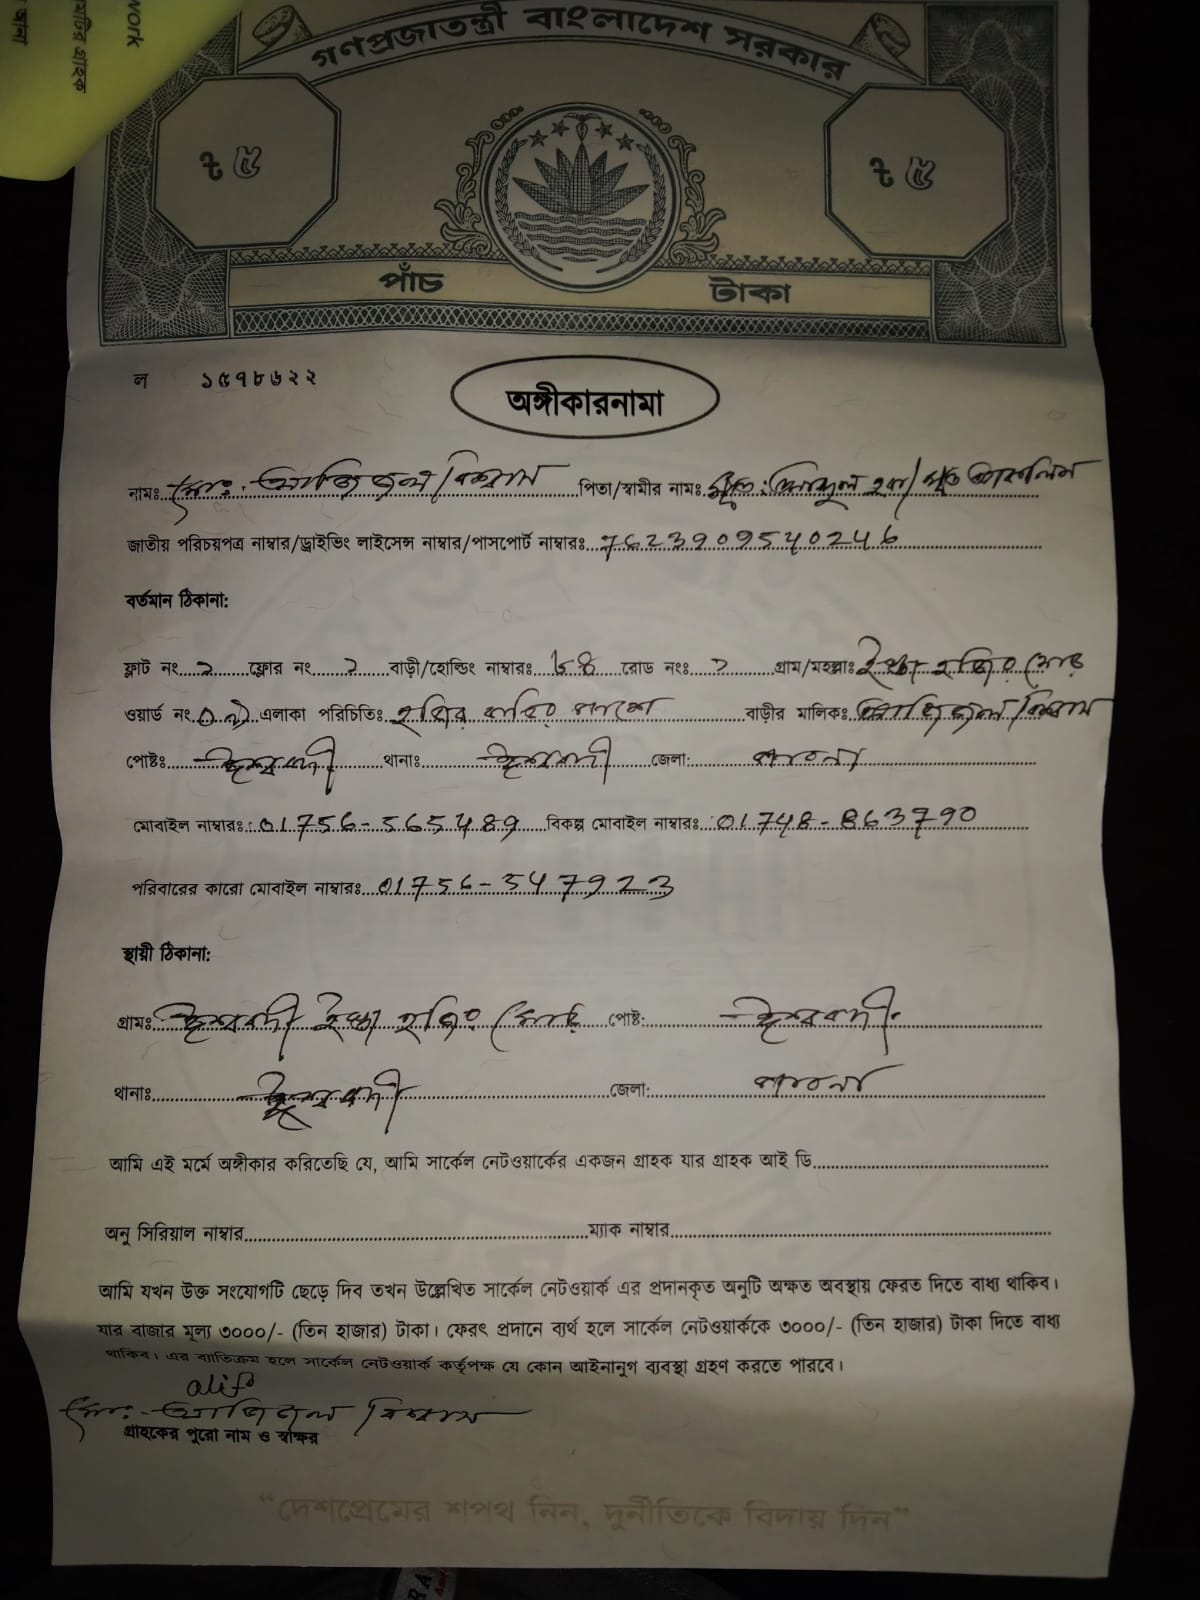 work
মটির গ্রাহক
জানা
গণপ্রজাতন্ত্রী বাংলাদেশ সরকার
৳ ৫ ৳ ৫
পাঁচ টাকা
ল ১৫৭৮৬২২
অঙ্গীকারনামা
নামঃ মোঃ আজিজুল বিশ্বাস পিতা/স্বামীর নামঃ মৃত: হক/মৃত
জাতীয় পরিচয়পত্র নাম্বার/ড্রাইভিং লাইসেন্স নাম্বার/পাসপোর্ট নাম্বারঃ 7623909540246
বর্তমান ঠিকানা:
ফ্লাট নং ২ ফ্লোর নং ২ বাড়ী/হোল্ডিং নাম্বারঃ ৮৪ রোড নংঃ ১ গ্রাম/মহল্লাঃ মোড়
ওয়ার্ড নং এলাকা পরিচিতিঃ বাড়ির পাশে বাড়ীর মালিকঃ আজিজুল বিশ্বাস
পোষ্টঃ ঈশ্বরদী থানাঃ ঈশ্বরদী জেলা: পাবনা
মোবাইল নাম্বারঃ 01756-565489 বিকল্প মোবাইল নাম্বারঃ 01748-863790
পরিবারের কারো মোবাইল নাম্বারঃ 01756-547923
স্থায়ী ঠিকানা:
গ্রামঃ ঈশ্বরদী মোড় পোষ্ট: ঈশ্বরদী
থানাঃ ঈশ্বরদী জেলা: পাবনা
আমি এই মর্মে অঙ্গীকার করিতেছি যে, আমি সার্কেল নেটওয়ার্কের একজন গ্রাহক যার গ্রাহক আই ডি
অনু সিরিয়াল নাম্বার ম্যাক নাম্বার
আমি যখন উক্ত সংযোগটি ছেড়ে দিব তখন উল্লেখিত সার্কেল নেটওয়ার্ক এর প্রদানকৃত অনুটি অক্ষত অবস্থায় ফেরত দিতে বাধ্য থাকিব।
যার বাজার মূল্য ৩০০০/- (তিন হাজার) টাকা। ফেরৎ প্রদানে ব্যর্থ হলে সার্কেল নেটওয়ার্ককে ৩০০০/- (তিন হাজার) টাকা দিতে বাধ্য
থাকিব। এর ব্যতিক্রম হলে সার্কেল নেটওয়ার্ক কর্তৃপক্ষ যে কোন আইনানুগ ব্যবস্থা গ্রহণ করতে পারবে।
alif
মোঃ আজিজুল বিশ্বাস
গ্রাহকের পুরো নাম ও স্বাক্ষর
“দেশপ্রেমের শপথ নিন, দুর্নীতিকে বিদায় দিন”